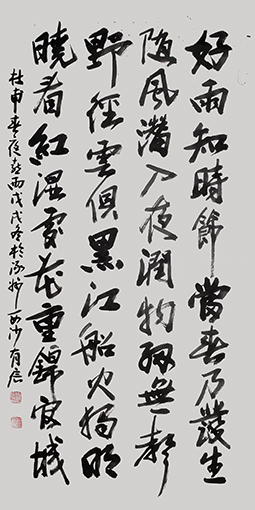 好雨知時節當春乃發生
隨風潛入夜潤物細無聲
野徑雲俱黑江船火獨明
曉看紅濕處花重錦官城
杜甫春夜喜雨戊戌冬於